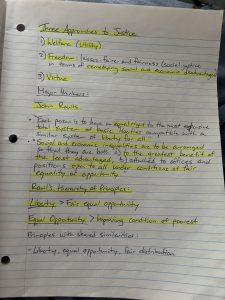 Three Approaches to Justice
1) Welfare (Utility)
2) Freedom: laissez-faire and fairness (social justice
in terms of remedying social and economic disadvantages)
3) Virtue
Major thinkers:
John Rawls
Each person is to have an equal right to the most extensive
total system of basic liberties compatible with a
similar system of liberty for all.
Social and economic inequalities are to be arranged
so that they are both 1) to the greatest benefit of
the least advantaged, 2) attached to offices and
positions open to all under conditions of fair
equality of opportunity
Rawl's Hierarchy of Principles:
Liberty > Fair equal opportunity
Equal Opportunity > Improving condition of poorest
Principles with shared similarities:
- Liberty, equal opportunity, fair distribution